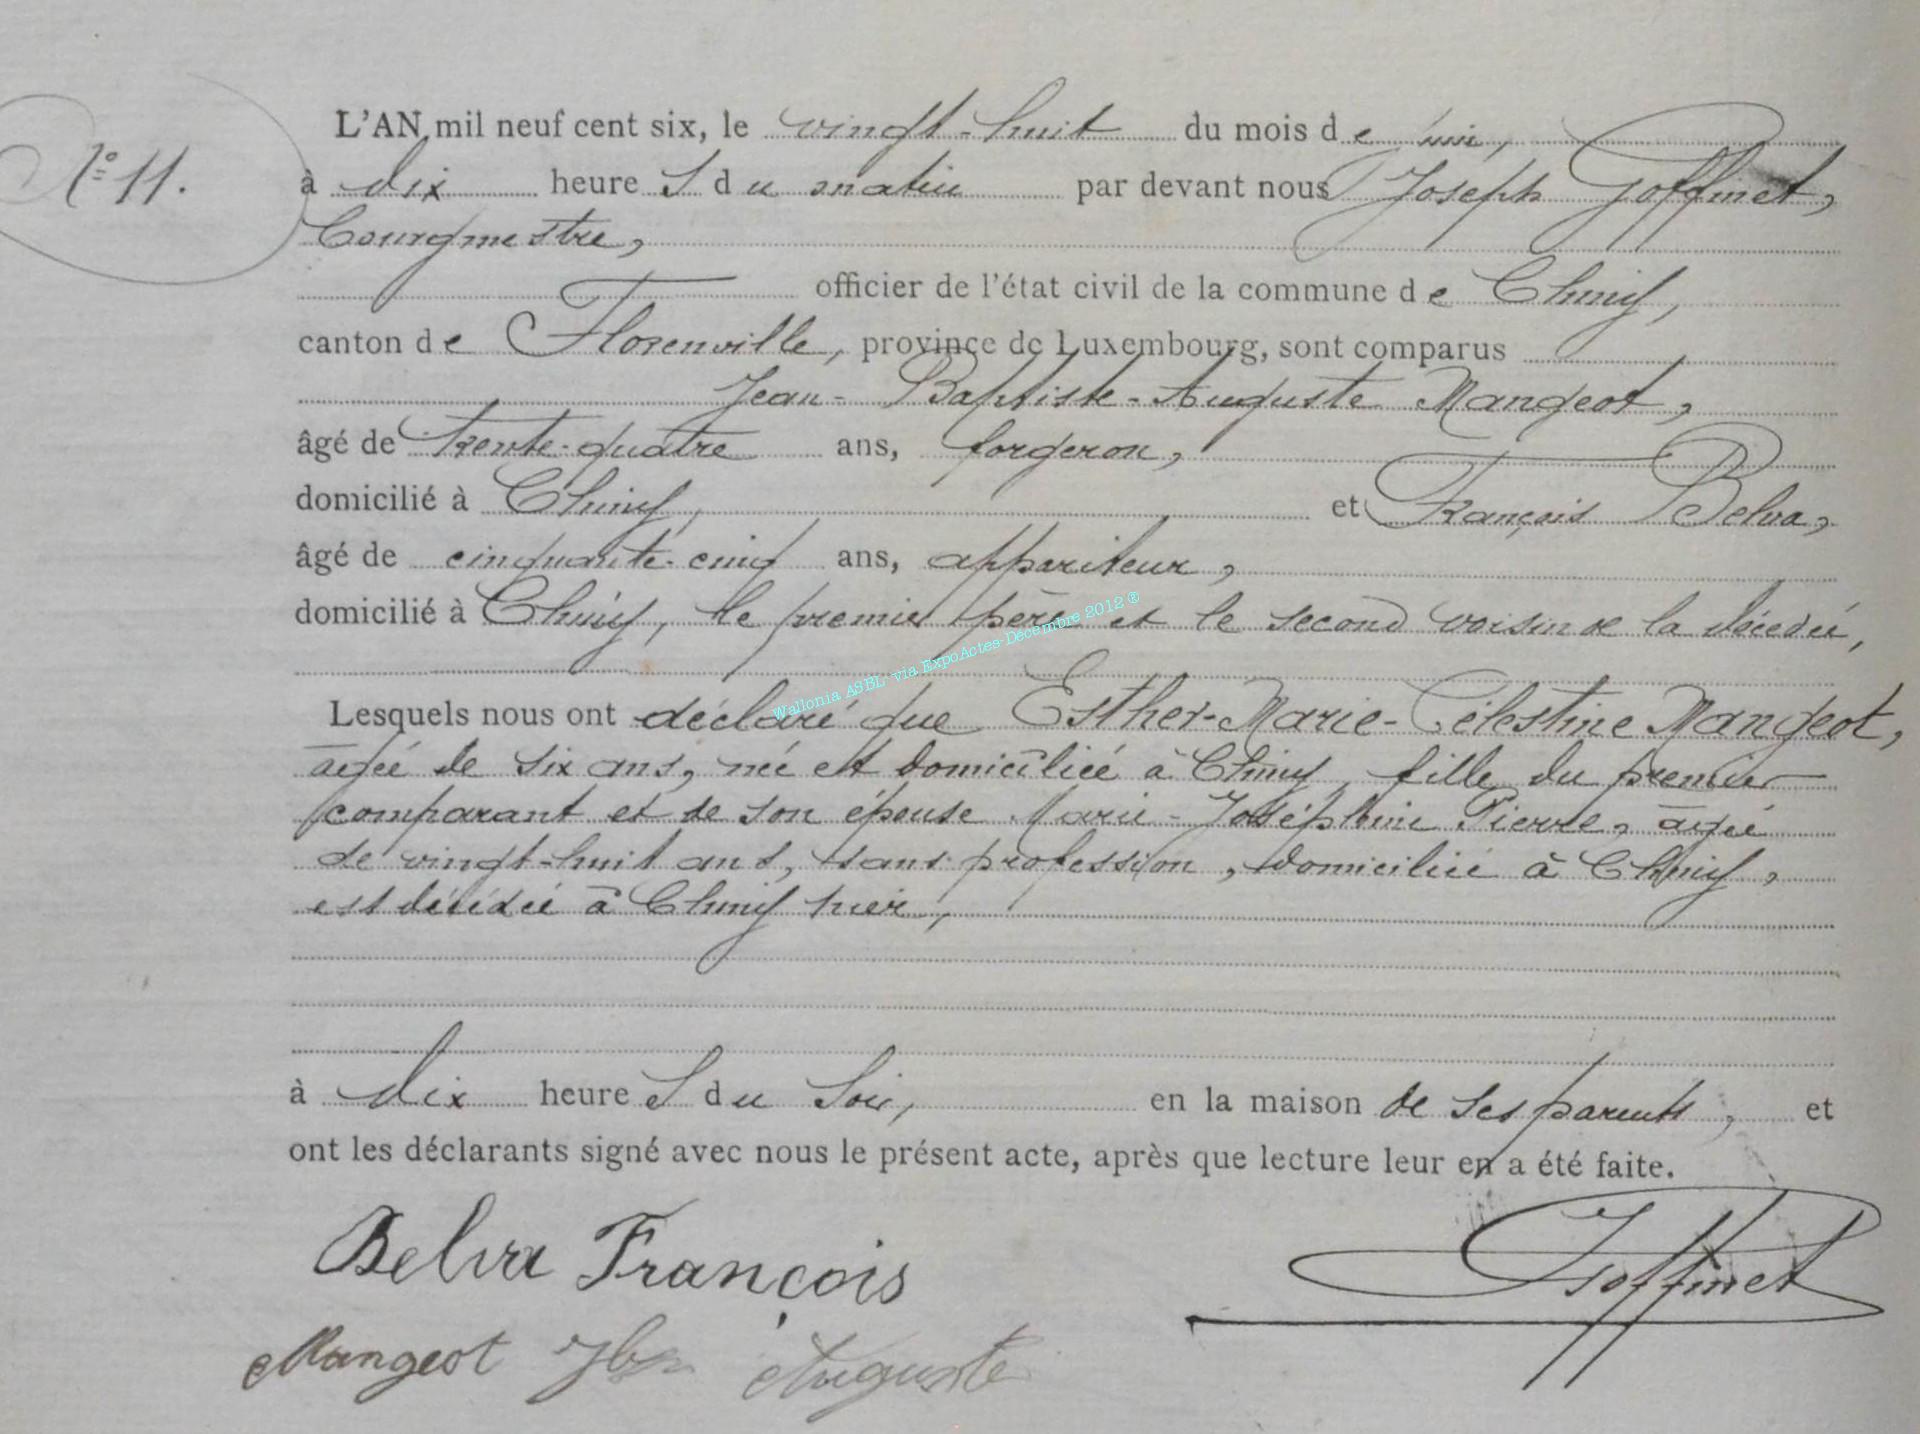 N° 11.
L'AN mil neuf cent six, le vingt-huit du mois de
à dix heures du matin par devant nous Joseph Goffinet,
Bourgmestre,
officier de l'état civil de la commune de Chiny,
canton de Florenville, province de Luxembourg, sont comparus
Jean-Baptiste-Auguste Mangeot,
âgé de trente-quatre ans, forgeron,
domicilié à Chiny, et François Belva,
âgé de cinquante-cinq ans, appariteur,
domicilié à Chiny, le premier père et le second voisin de la décédée,
Wallonia ASBL via ExpoActes-Décembre 2012 ®
Lesquels nous ont déclaré que Esther-Marie-Célestine Mangeot,
agée de six ans, née et domiciliée à Chiny, fille du premier
comparant et de son épouse Marie-Joséphine Pierre, agée
de vingt-huit ans, sans profession, domiciliée à Chiny,
est décédée à Chiny hier,
à dix heures du soir, en la maison de ses parents, et
ont les déclarants signé avec nous le présent acte, après que lecture leur en a été faite.
Belva François
Goffinet
Mangeot Auguste